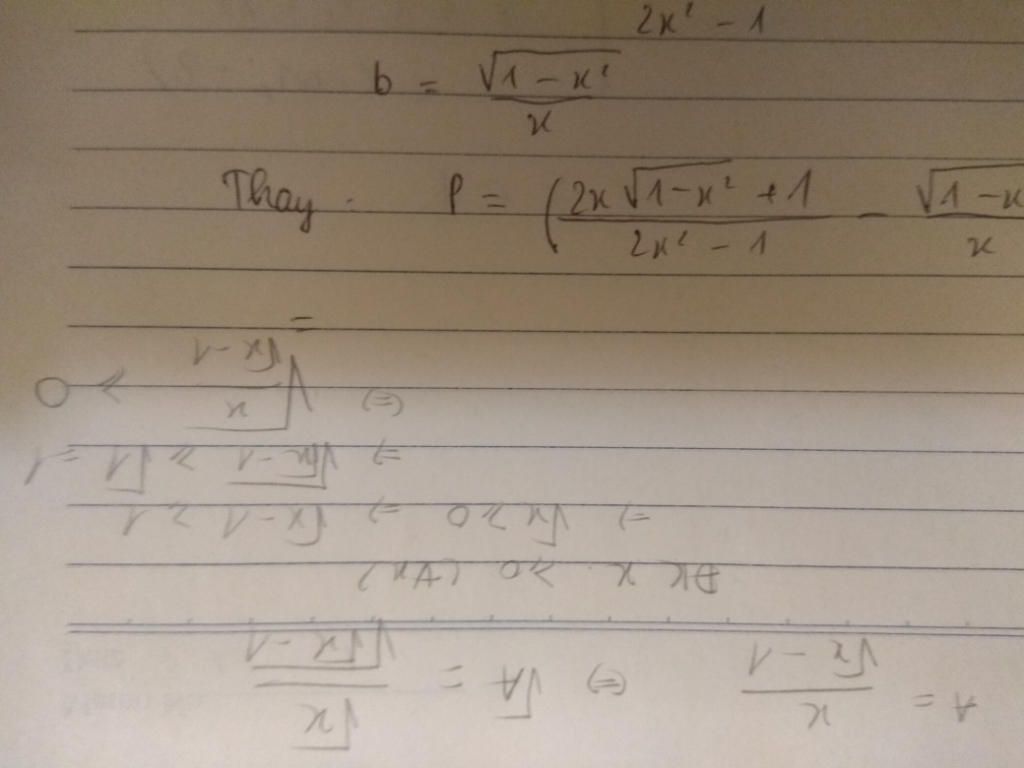 2x² - 1
b = √(1 - x²) / x
Thay. P = ( (2x√(1-x²) + 1) / (2x² - 1) - √(1-x / x
=
A = x / (√x - 1) (=) √A = √x / √(√x - 1)
ĐK x ≥ 0 (∀x)
=> √x ≥ 0 => √x - 1 ≥ 1
=> √(√x - 1) ≥ √1 = 1
(=) √(x / (√x - 1)) > 0